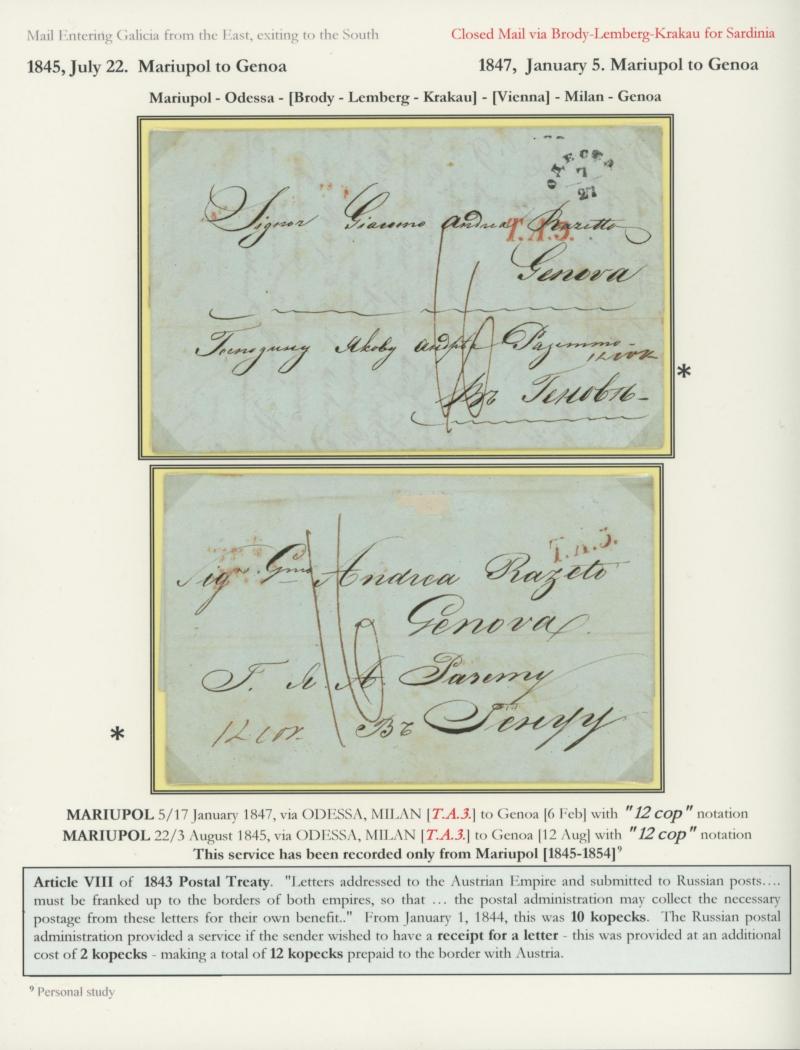 Mail Entering Galicia from the East, exiting to the South
Closed Mail via Brody-Lemberg-Krakau for Sardinia
1845, July 22. Mariupol to Genoa
1847, January 5. Mariupol to Genoa
Mariupol - Odessa - [Brody - Lemberg - Krakau] - [Vienna] - Milan - Genoa
ОДЕССА
7
27
Signor Giacomo Andrea Razetto
T.A.3.
Genova
16
Якобу
12 cop
Въ
*
T.A.3.
Sigr Gmo Andrea Razeto
Genova
16
12 cop.
Въ Геную
*
MARIUPOL 5/17 January 1847, via ODESSA, MILAN [T.A.3.] to Genoa [6 Feb] with "12 cop" notation
MARIUPOL 22/3 August 1845, via ODESSA, MILAN [T.A.3.] to Genoa [12 Aug] with "12 cop" notation
This service has been recorded only from Mariupol [1845-1854]⁹
Article VIII of 1843 Postal Treaty. "Letters addressed to the Austrian Empire and submitted to Russian posts….
must be franked up to the borders of both empires, so that … the postal administration may collect the necessary
postage from these letters for their own benefit.." From January 1, 1844, this was 10 kopecks. The Russian postal
administration provided a service if the sender wished to have a receipt for a letter - this was provided at an additional
cost of 2 kopecks - making a total of 12 kopecks prepaid to the border with Austria.
⁹ Personal study